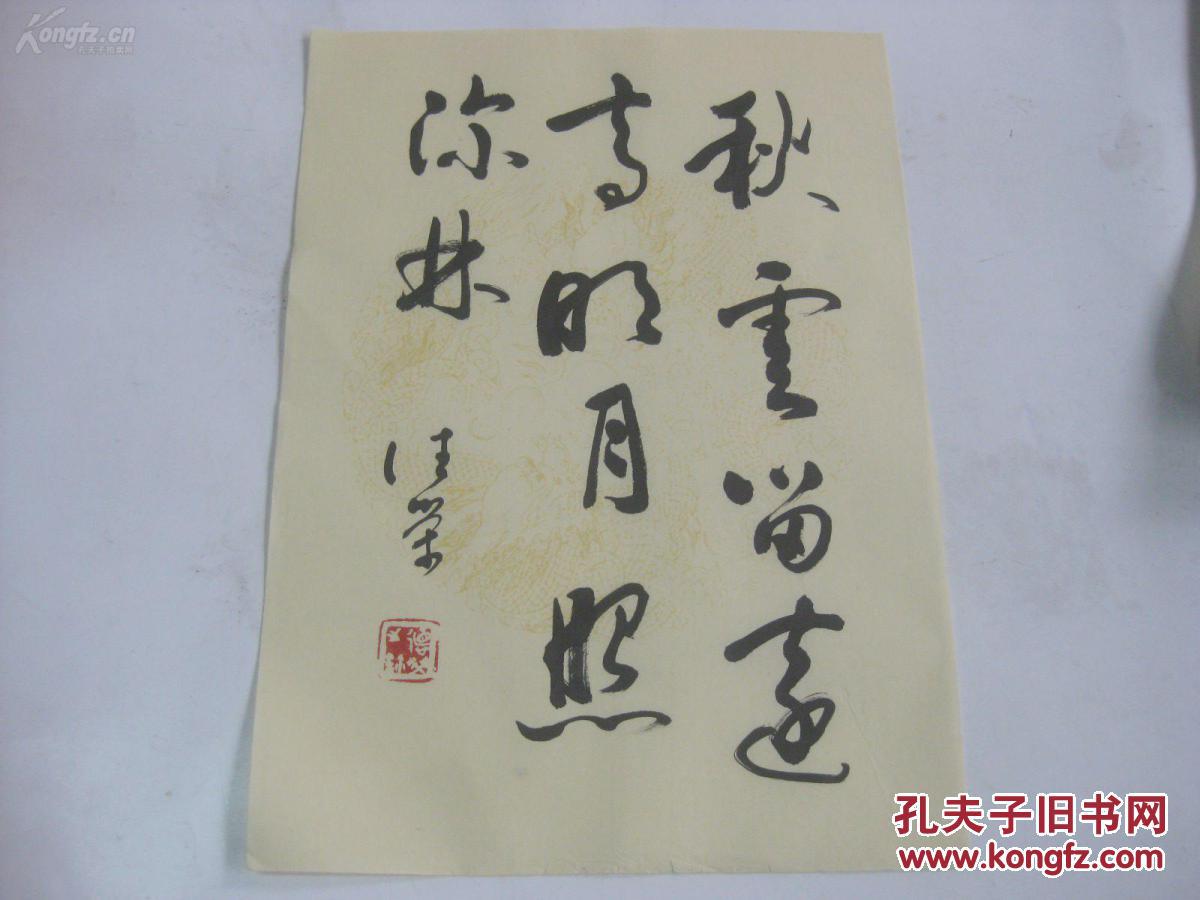 秋雲留遠
高明月照
深林
汪榮
Kongfz.cn
孔夫子拍卖网
孔夫子旧书网
www.kongfz.com